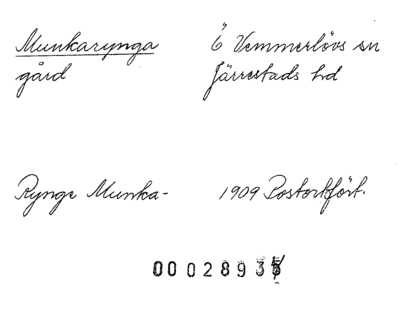 Munkarynga Ö Vemmerlövs sn
gård Järrestads hd
Rynge Munka- 1909 Postortsfört.
0002893